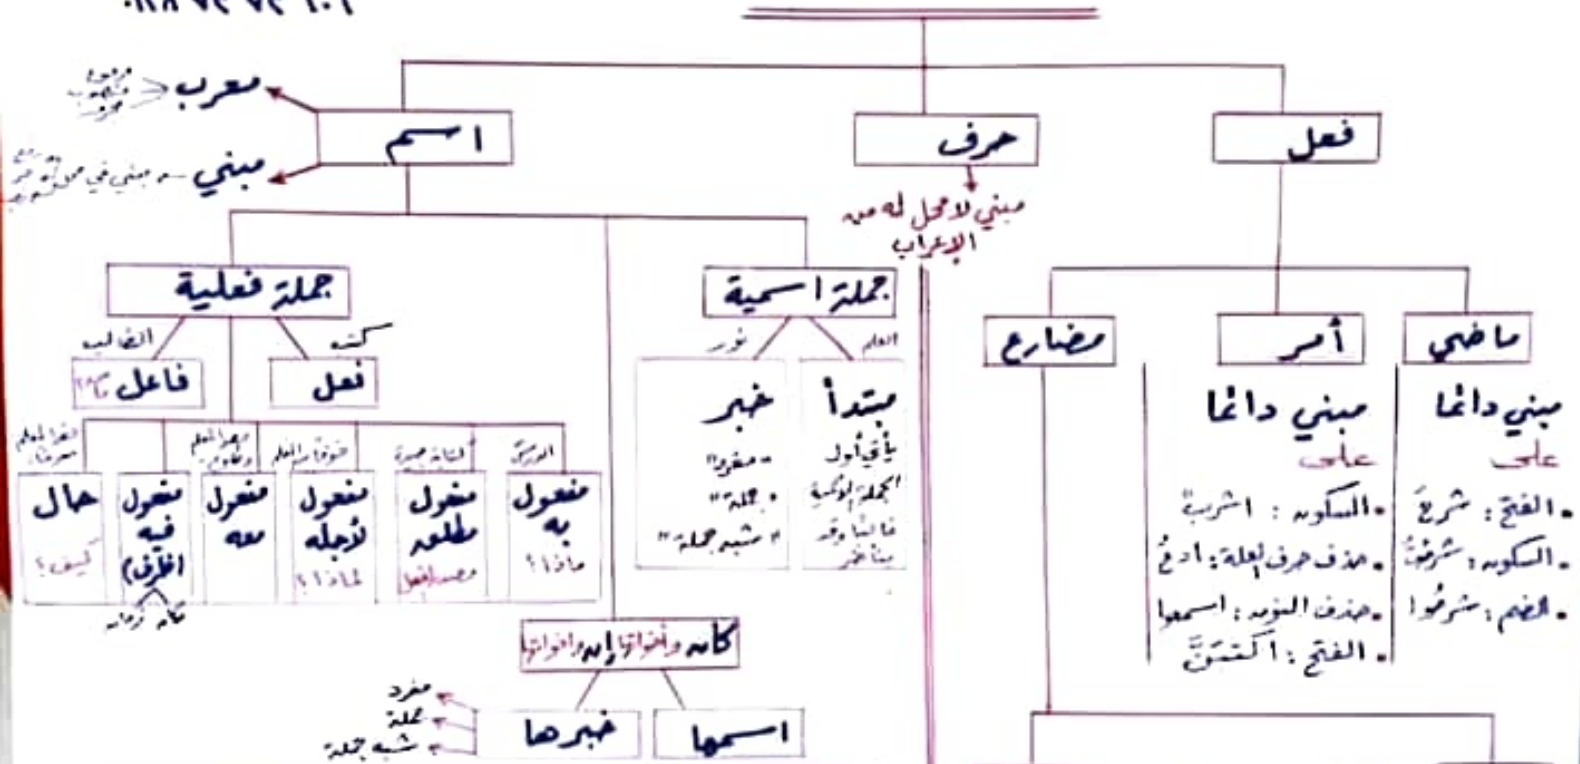 فعل
حرف
اسم
معرب
مبني
مبني لا محل له من
الإعراب
ماضي
أمر
مضارع
مبني دائما
على
• الفتح : شرحَ
• السكون : شرحْتُ
• الضم : شرحُوا
مبني دائما
على
• السكون : اشربْ
• حذف حرف العلة : ادعُ
• حذف النون : اسمعوا
• الفتح : اكتبَنَّ
جملة اسمية
العلم
نور
مبتدأ
يأتي أول
الجملة الاسمية
غالبا وقد
يتأخر
خبر
"مفرد"
"جملة"
"شبه جملة"
جملة فعلية
كتب
الطالب
فعل
فاعل
الدرسَ
مفعول
به
ماذا؟
كتابة جيدة
مفعول
مطلق
مفعول
لأجله
لماذا؟
مفعول
معه
مفعول
فيه
(ظرف)
مكان زمان
حال
كيف؟
كان وأخواتها إن وأخواتها
اسمها
خبرها
مفرد
جملة
شبه جملة